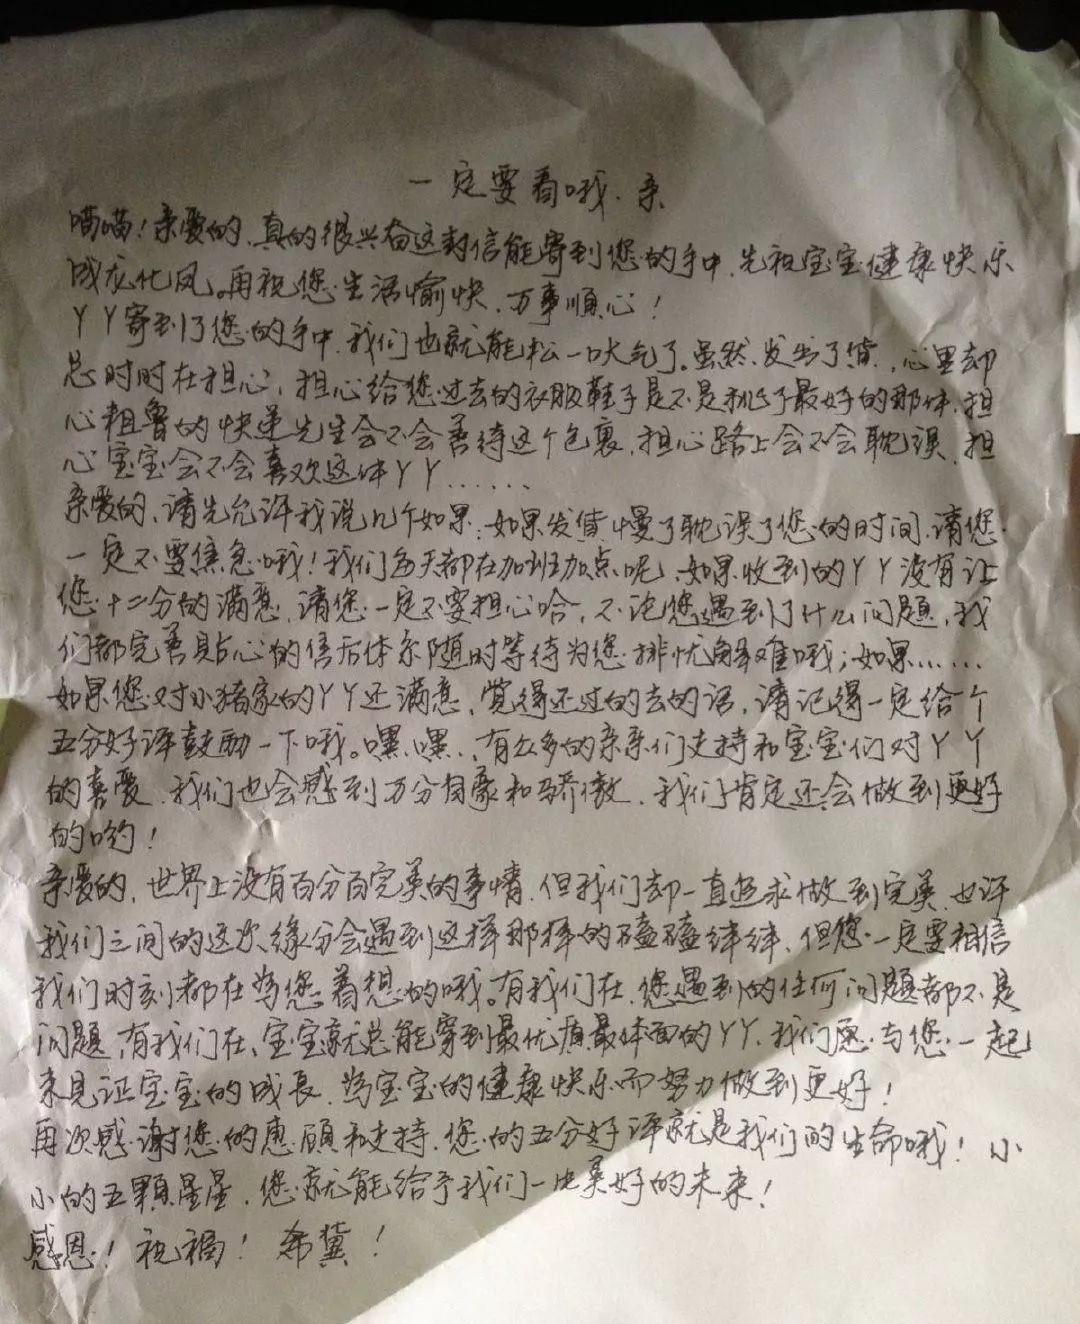 一定要看哦.亲
喵喵!亲爱的,真的很兴奋这封信能寄到您的手中,先祝宝宝健康快乐
成龙化凤。再祝您生活愉快,万事順心!
丫丫寄到了您的手中,我们也就能松一口大气了。虽然发出了货,心里却
总时时在担心,担心给您过去的衣服鞋子是不是挑了最好的那件,担
心粗鲁的快递先生会不会善待这个包裹,担心路上会不会耽误,担
心宝宝会不会喜欢这件丫丫……
亲爱的,请先允许我说几个如果,如果发货慢了耽误了您的时间,请您
一定不要焦急哦!我们每天都在加班加点呢,如果收到的丫丫没有让
您十二分的满意,请您一定不要担心哈,不论您遇到了什么问题,我
们都完善贴心的售后体系随时等待为您排忧解难哦;如果……
如果您对小猪家的丫丫还满意,觉得还过的去的话,请记得一定给个
五分好评鼓励一下哦。嘿嘿,有么多的亲亲们支持和宝宝们对丫丫
的喜爱,我们也会感到万分自豪和骄傲,我们肯定还会做到更好
的哟!
亲爱的,世界上没有百分百完美的事情,但我们却一直追求做到完美,也许
我们之间的这次缘分会遇到这样那样的磕磕绊绊,但您一定要相信
我们时刻都在为您着想的哦。有我们在,您遇到的任何问题都不是
问题,有我们在,宝宝就总能穿到最优质最体面的丫丫,我们愿与您一起
来见证宝宝的成長,为宝宝的健康快乐而努力做到更好!
再次感谢您的惠顾和支持,您的五分好评就是我们的生命哦!小
小的五顆星星,您就能给予我们一片美好的未来!
感恩!祝福!希冀!